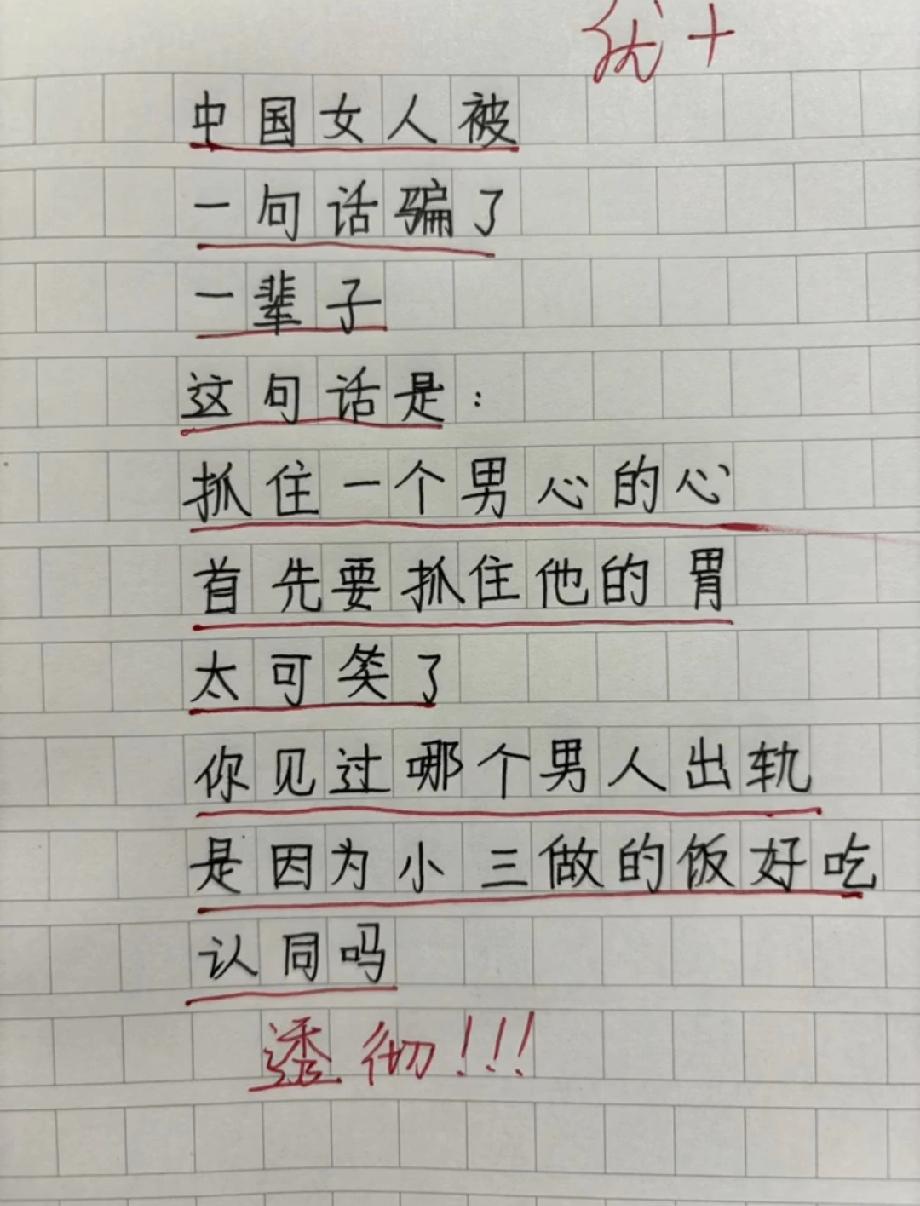 优+
中国女人被
一句话骗了
一辈子
这句话是：
抓住一个男心的心
首先要抓住他的胃
太可笑了
你见过哪个男人出轨
是因为小三做的饭好吃
认同吗
透彻!!!